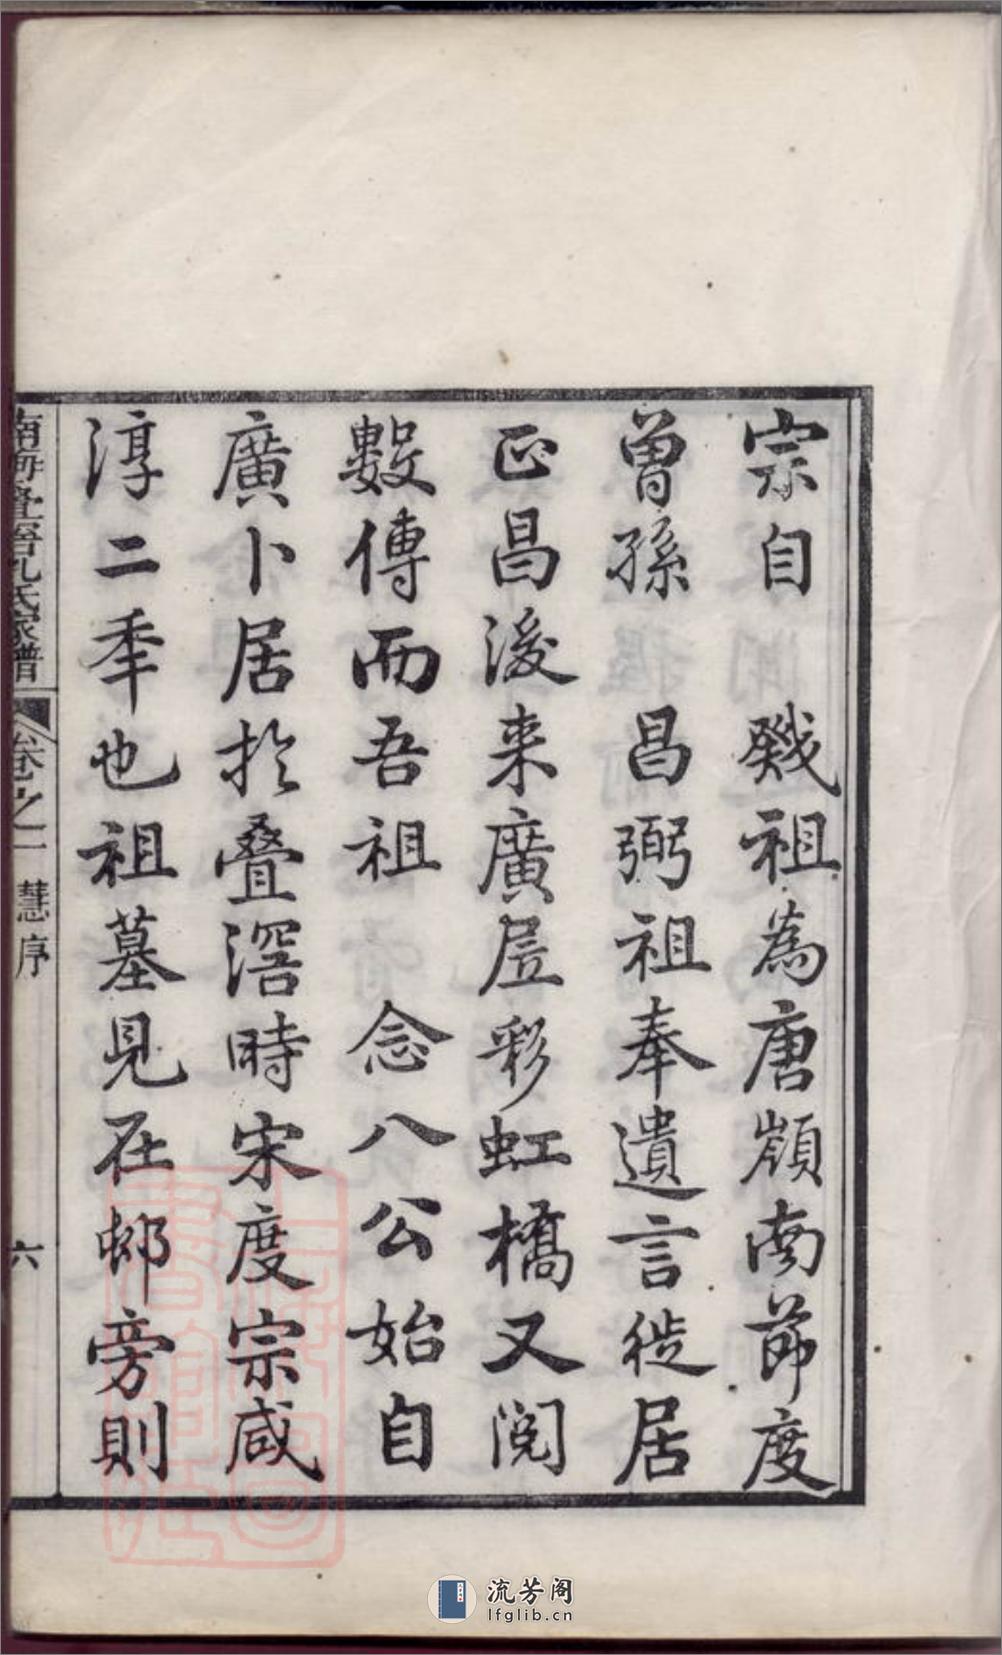 宗自　戣祖為唐嶺南節度
曾孫　昌弼祖奉遺言徙居
正昌後来廣居彩虹橋又閱
數傳而吾祖　念八公始自
廣卜居於疊滘時宋度宗咸
淳二季也祖墓見在邨旁則
南海疊滘孔氏家譜
卷之一　慧序
六
流芳阁
lfglib.cn